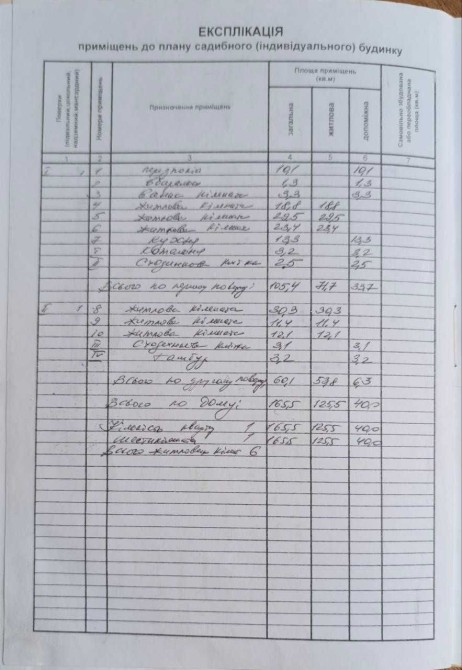 ЕКСПЛІКАЦІЯ
приміщень до плану садибного (індивідуального) будинку
Поверхи
Номери приміщень
Призначення приміщень
Площа приміщень
(кв.м)
загальна
житлова
допоміжна
Самовільно збудована
або переобладнана
площа (кв.м)
1 2 3 4 5 6 7
I 1 1 передпокій 10,1 10,1
2 1,3 1,3
3 Ванна кімната 9,3 9,3
4 житлова кімната 18,8 18,8
5 житлова кімната 29,5 29,5
6 житлова кімната 23,4 23,4
7 кухня
3,2 3,2
I Сходинкова клітка 2,5 2,5
Всього по першому поверсі 105,4 71,7 33,7
8 житлова кімната 30,3 30,3
9 житлова кімната 11,4 11,4
10 житлова кімната 12,1 12,1
II Сходинкова клітка 3,1 3,1
Тамбур 3,2 3,2
Всього по другому поверху 60,1 53,8 6,3
Всього по домуі 165,5 125,5 40,0
Кількість кварт 1 165,5 125,5 40,0
Шестикімнатн 1 165,5 125,5 40,0
Всього житлових кімнат 6